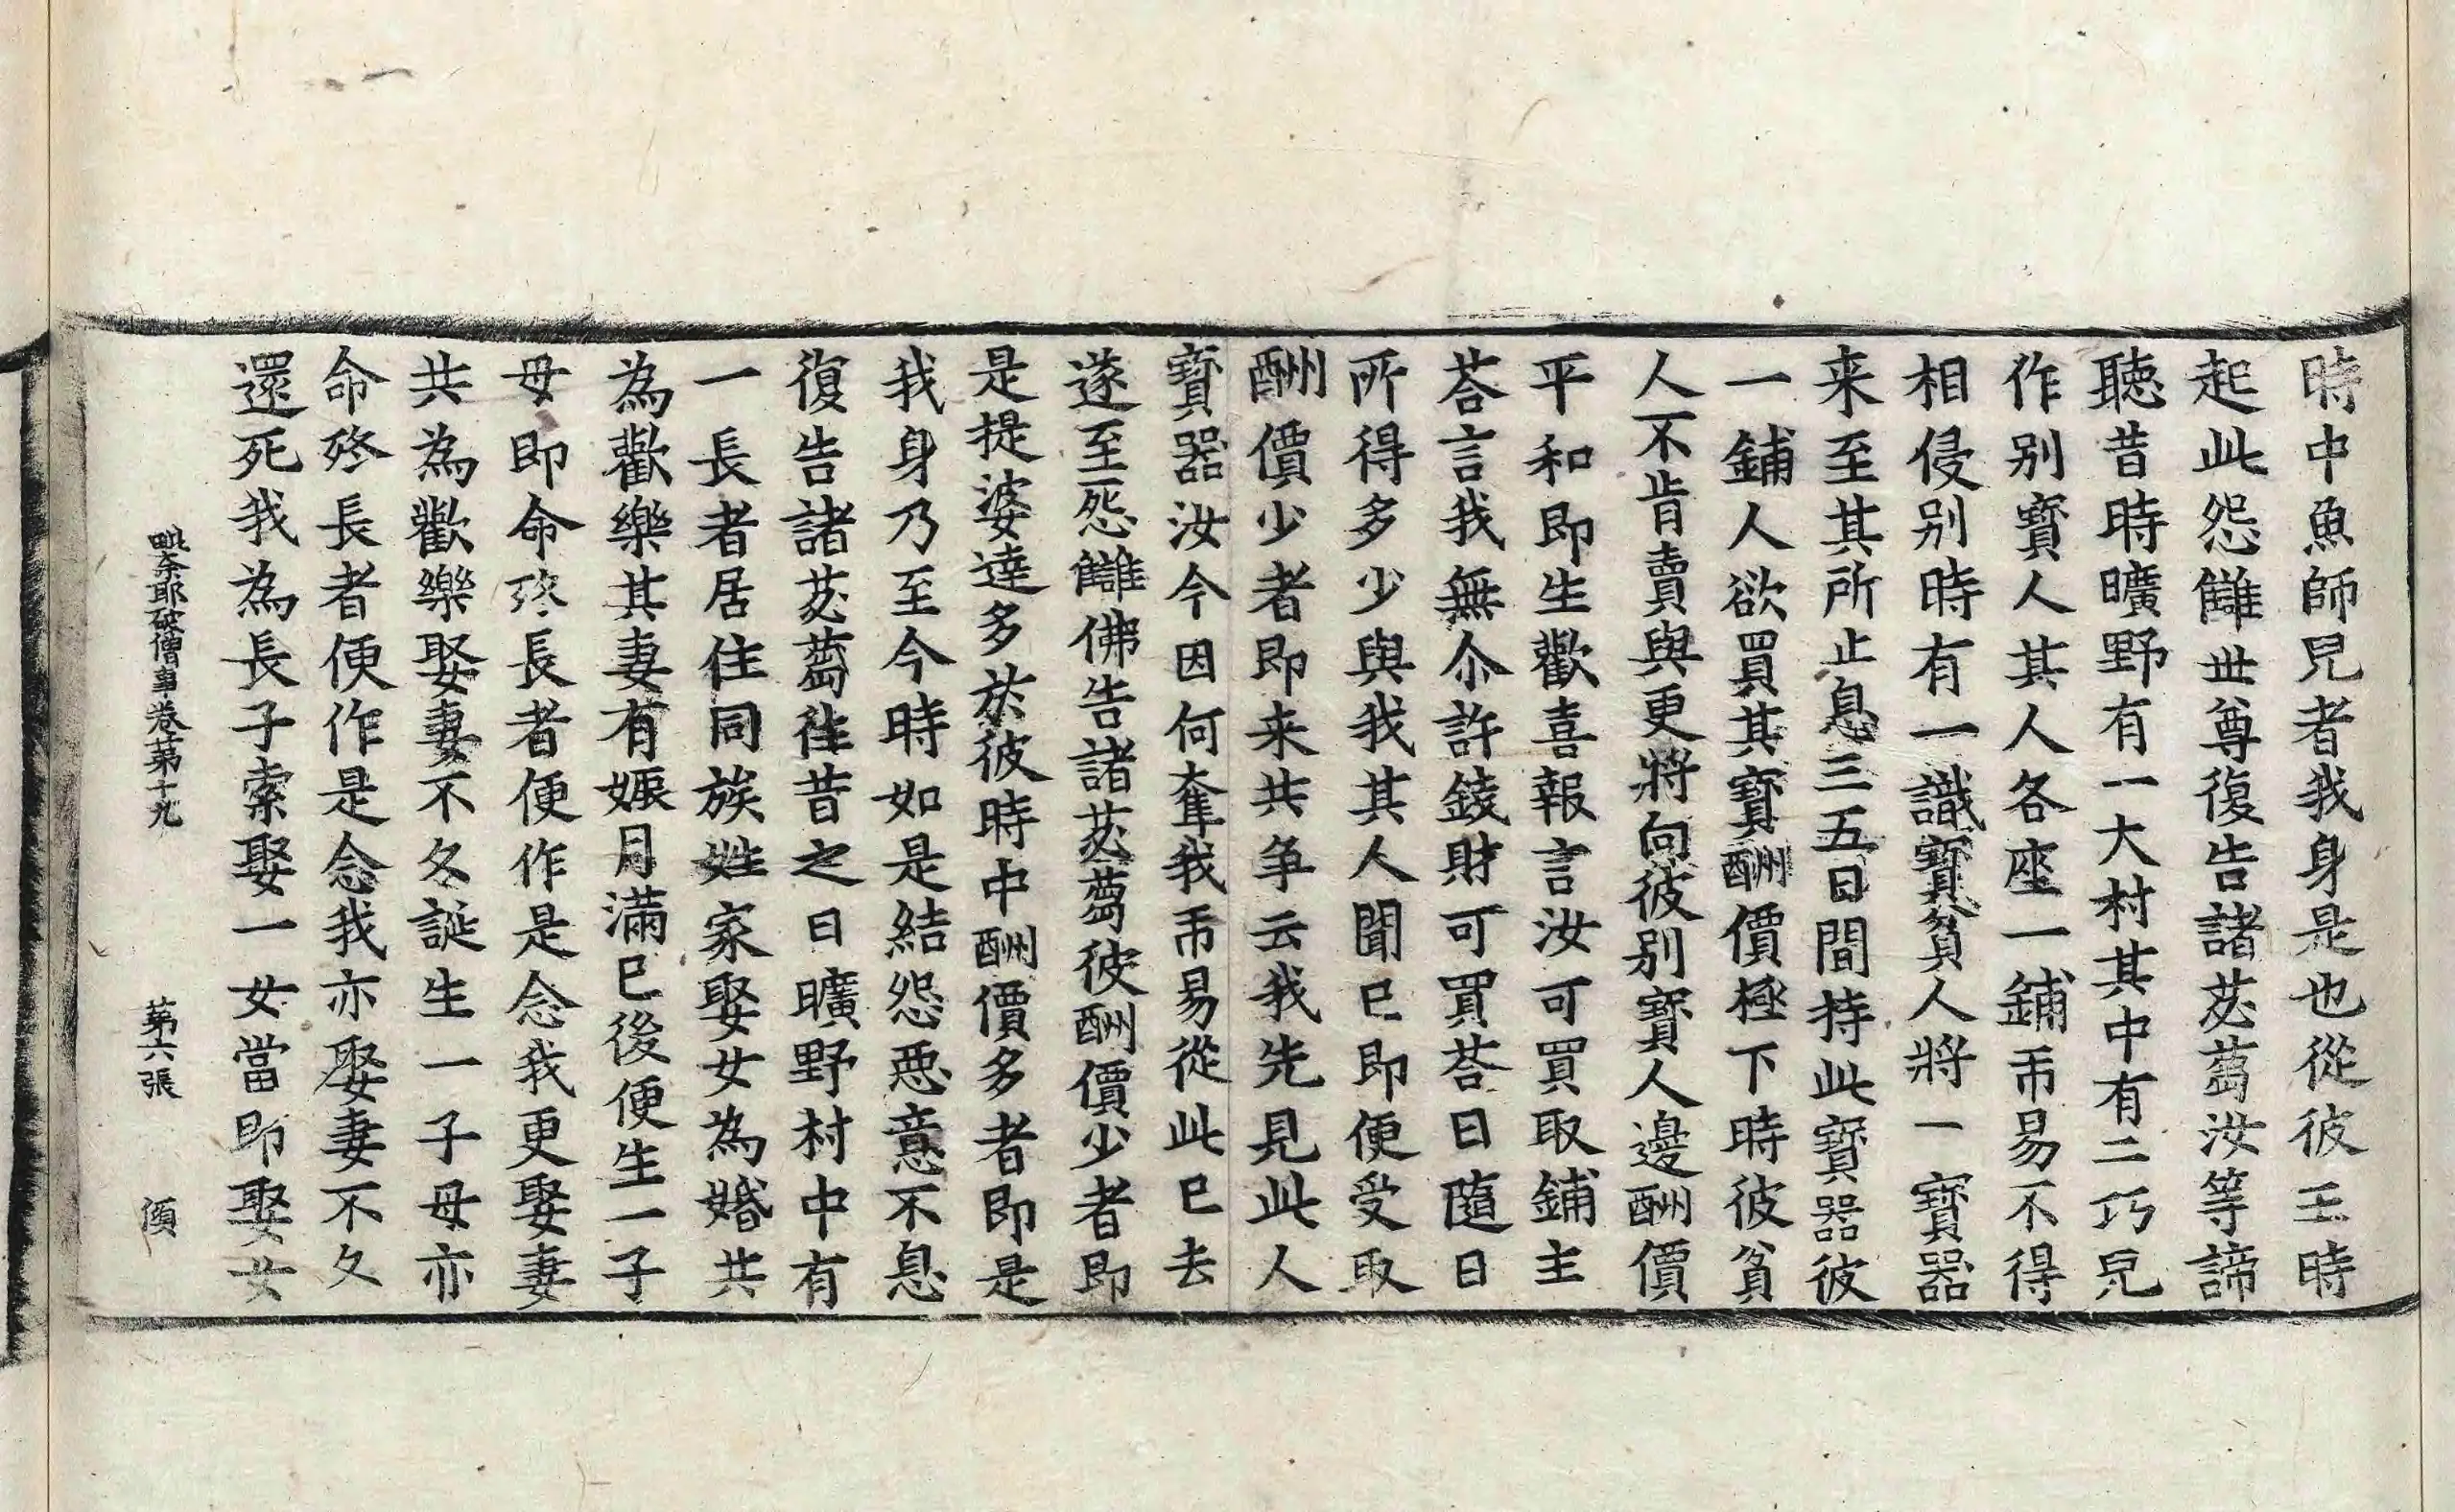 時中魚師兄者我身是也從彼王時
起此怨讎世尊復告諸苾蒭汝等諦
聽昔時曠野有一大村其中有二巧兒
作別寶人其人各座一鋪帀易不得
相侵別時有一識寶貧人將一寶器
来至其所止息三五日間持此寶器彼
一鋪人欲買其寶酬價極下時彼貧
人不肯賣與更將向彼別寶人邊酬價
平和即生歡喜報言汝可買取鋪主
荅言我無尒許錢財可買荅曰隨日
所得多少與我其人聞已即便受取
酬價少者即来共爭云我先見此人
寶器汝今因何奪我帀易從此已去
遂至怨讎佛告諸苾蒭彼酬價少者即
是提婆達多於彼時中酬價多者即是
我身乃至今時如是結怨惡意不息
復告諸苾蒭往昔之日曠野村中有
一長者居住同族姓家娶女為婚共
為歡樂其妻有娠月滿已後便生一子
母即命終長者便作是念我更娶妻
共為歡樂娶妻不久誕生一子母亦
命終長者便作是念我亦娶妻不久
還死我為長子索娶一女當即娶女
毗奈耶破僧事卷苐十九 苐六張 傾